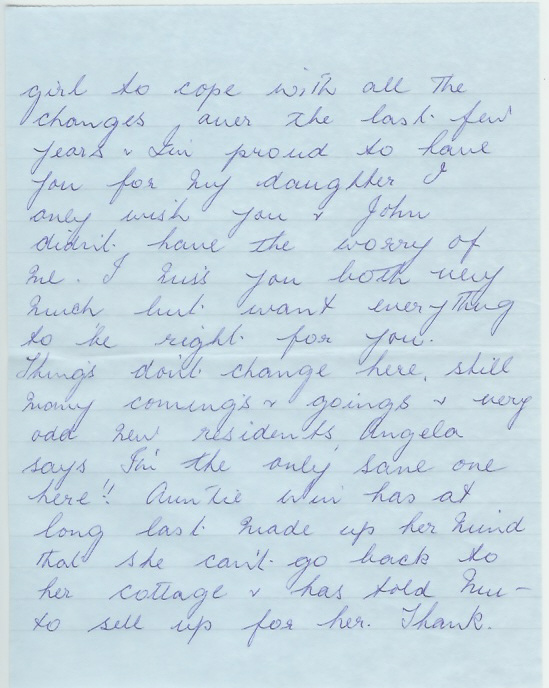 girl to cope with all the
changes over the last few
years & I'm proud to have
you for my daughter I
only wish you & John
didn't have the worry of
me. I miss you both very
much but want everything
to be right for you.
Things don't change here, still
many coming's & goings & very
odd new residents, Angela
says I'm the only sane one
here!! Auntie Win has at
long last made up her mind
that she can't go back to
her cottage & has told
to sell up for her. Thank.